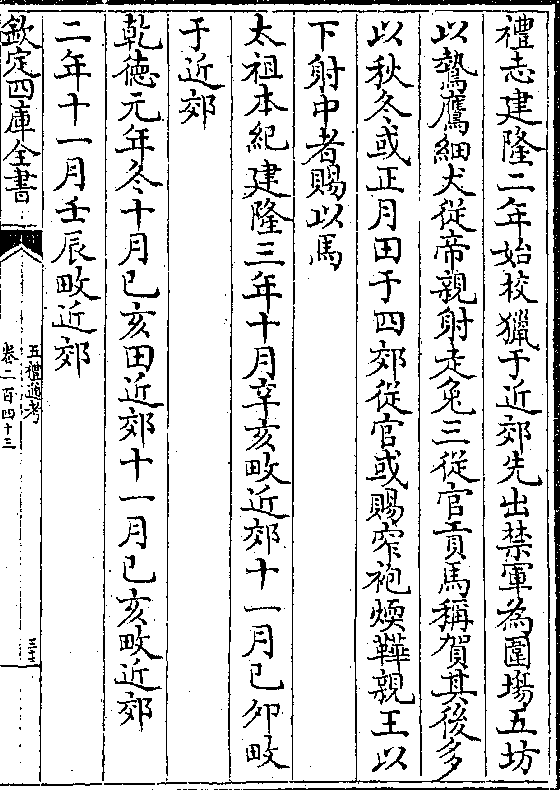 禮志建隆二年始校獵于近郊先出禁軍為圍場五坊
以鷙鷹細犬從帝親射走兔三從官貢馬稱賀其後多
以秋冬或正月田于四郊從官或賜窄袍煗鞾親王以
下射中者賜以馬
太祖本紀建隆三年十月辛亥畋近郊十一月已夘畋
于近郊
乾德元年冬十月已亥田近郊十一月已亥畋近郊
二年十一月壬辰畋近郊
欽定四庫全書
五禮通考
卷二百四十三